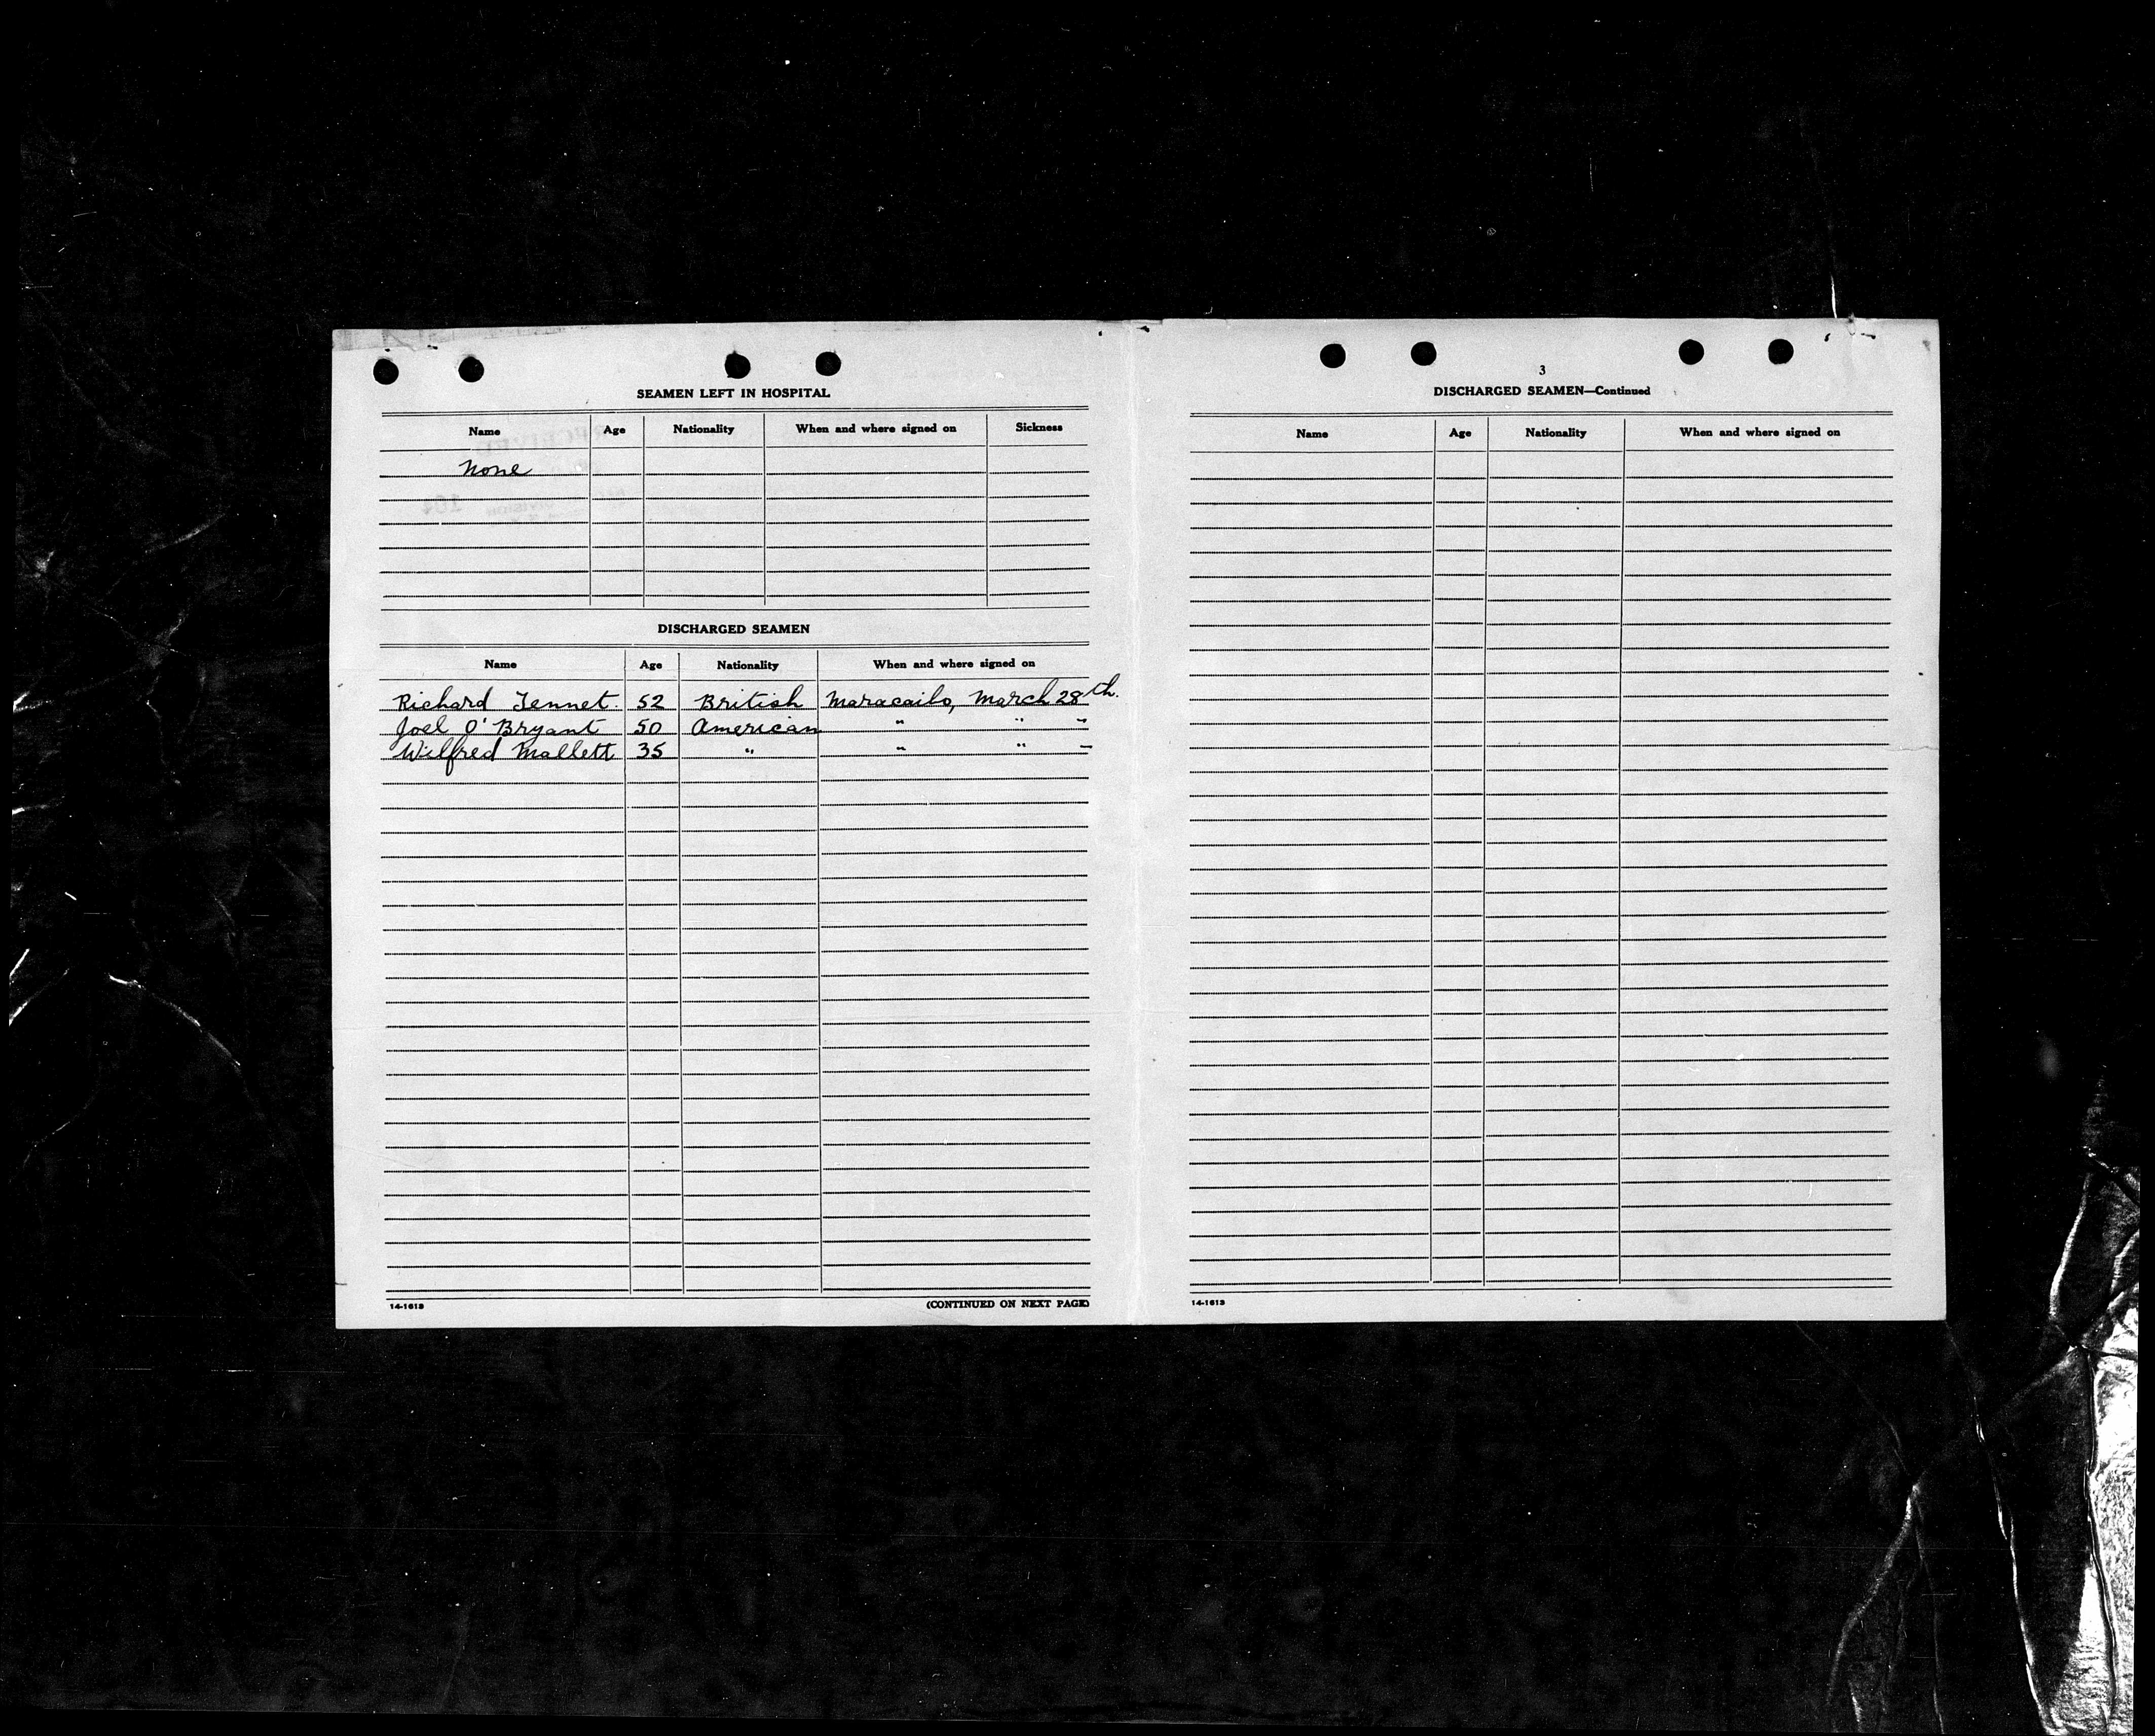 SEAMEN LEFT IN HOSPITAL
Name Age Nationality When and where signed on Sickness
None
DISCHARGED SEAMEN
Name Age Nationality When and where signed on
Richard Tennet. 52 British Maracaibo, March 28th.
Joel O'Bryant 50 American " " "
Wilfred Mallett 35 " " " "
14-1613
(CONTINUED ON NEXT PAGE)
3
DISCHARGED SEAMEN—Continued
Name Age Nationality When and where signed on
14-1613